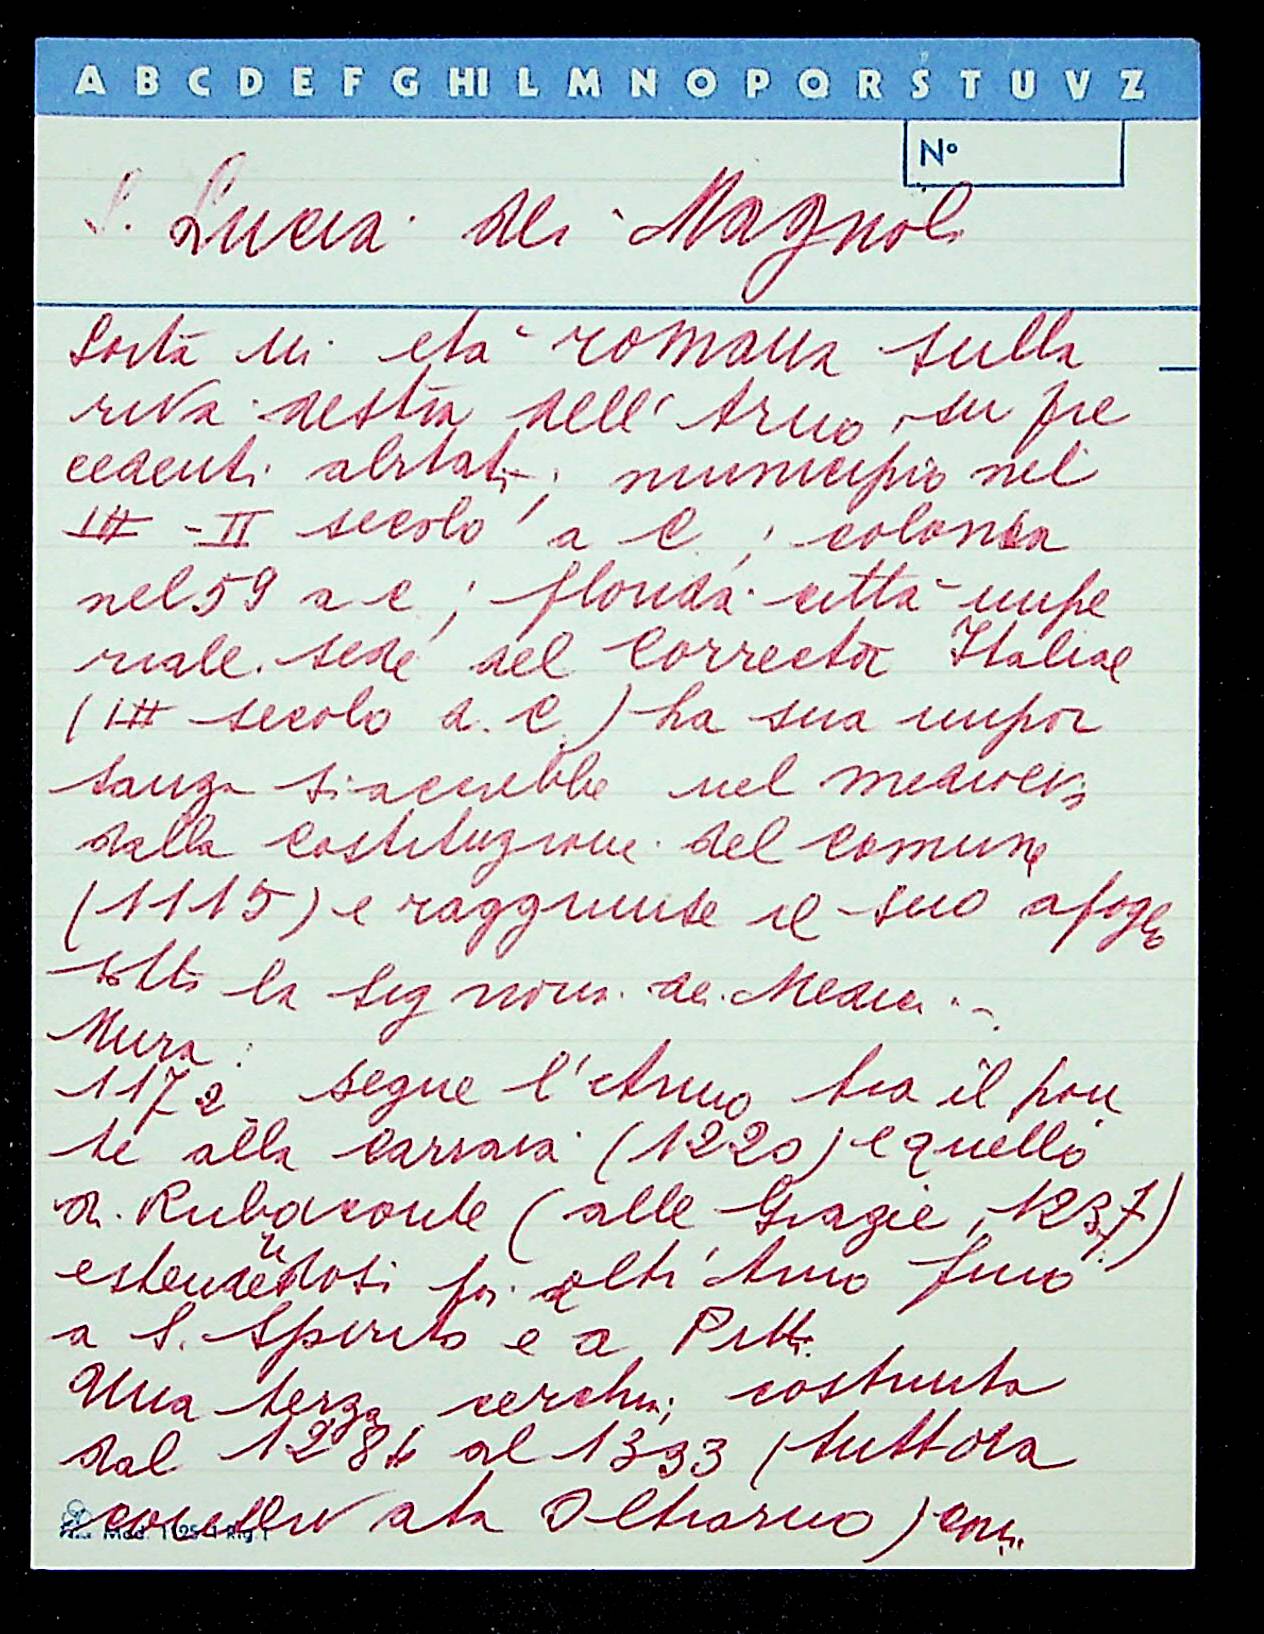 A B C D E F G HI L M N O P Q R S T U V Z
N°
S. Lucia dei Magnoli
Sorta in età romana sulla
riva destra dell'Arno, su pre
cedenti abitati; municipio nel
III - II secolo a C; colonia
nel 59 a C; florida città impe
riale sede del Corrector Italiae
(III secolo d. C.) la sua impor
tanza si accrebbe nel medioevo
dalla costituzione del comune
(1115) e raggiunse il suo apogeo
sotto la signoria dei Medici.
Mura:
1172 segue l'Arno tra il pon
te alla Carraia (1220) e quello
di Rubaconte (alle Grazie, 1237)
estendendosi poi oltr'Arno fino
a S. Spirito e a Pitti.
Una terza cerchia; costruita
dal 1284 al 1333 (tuttora
conservata Oltrarno)
Mod. 1125-1 Rig. 1